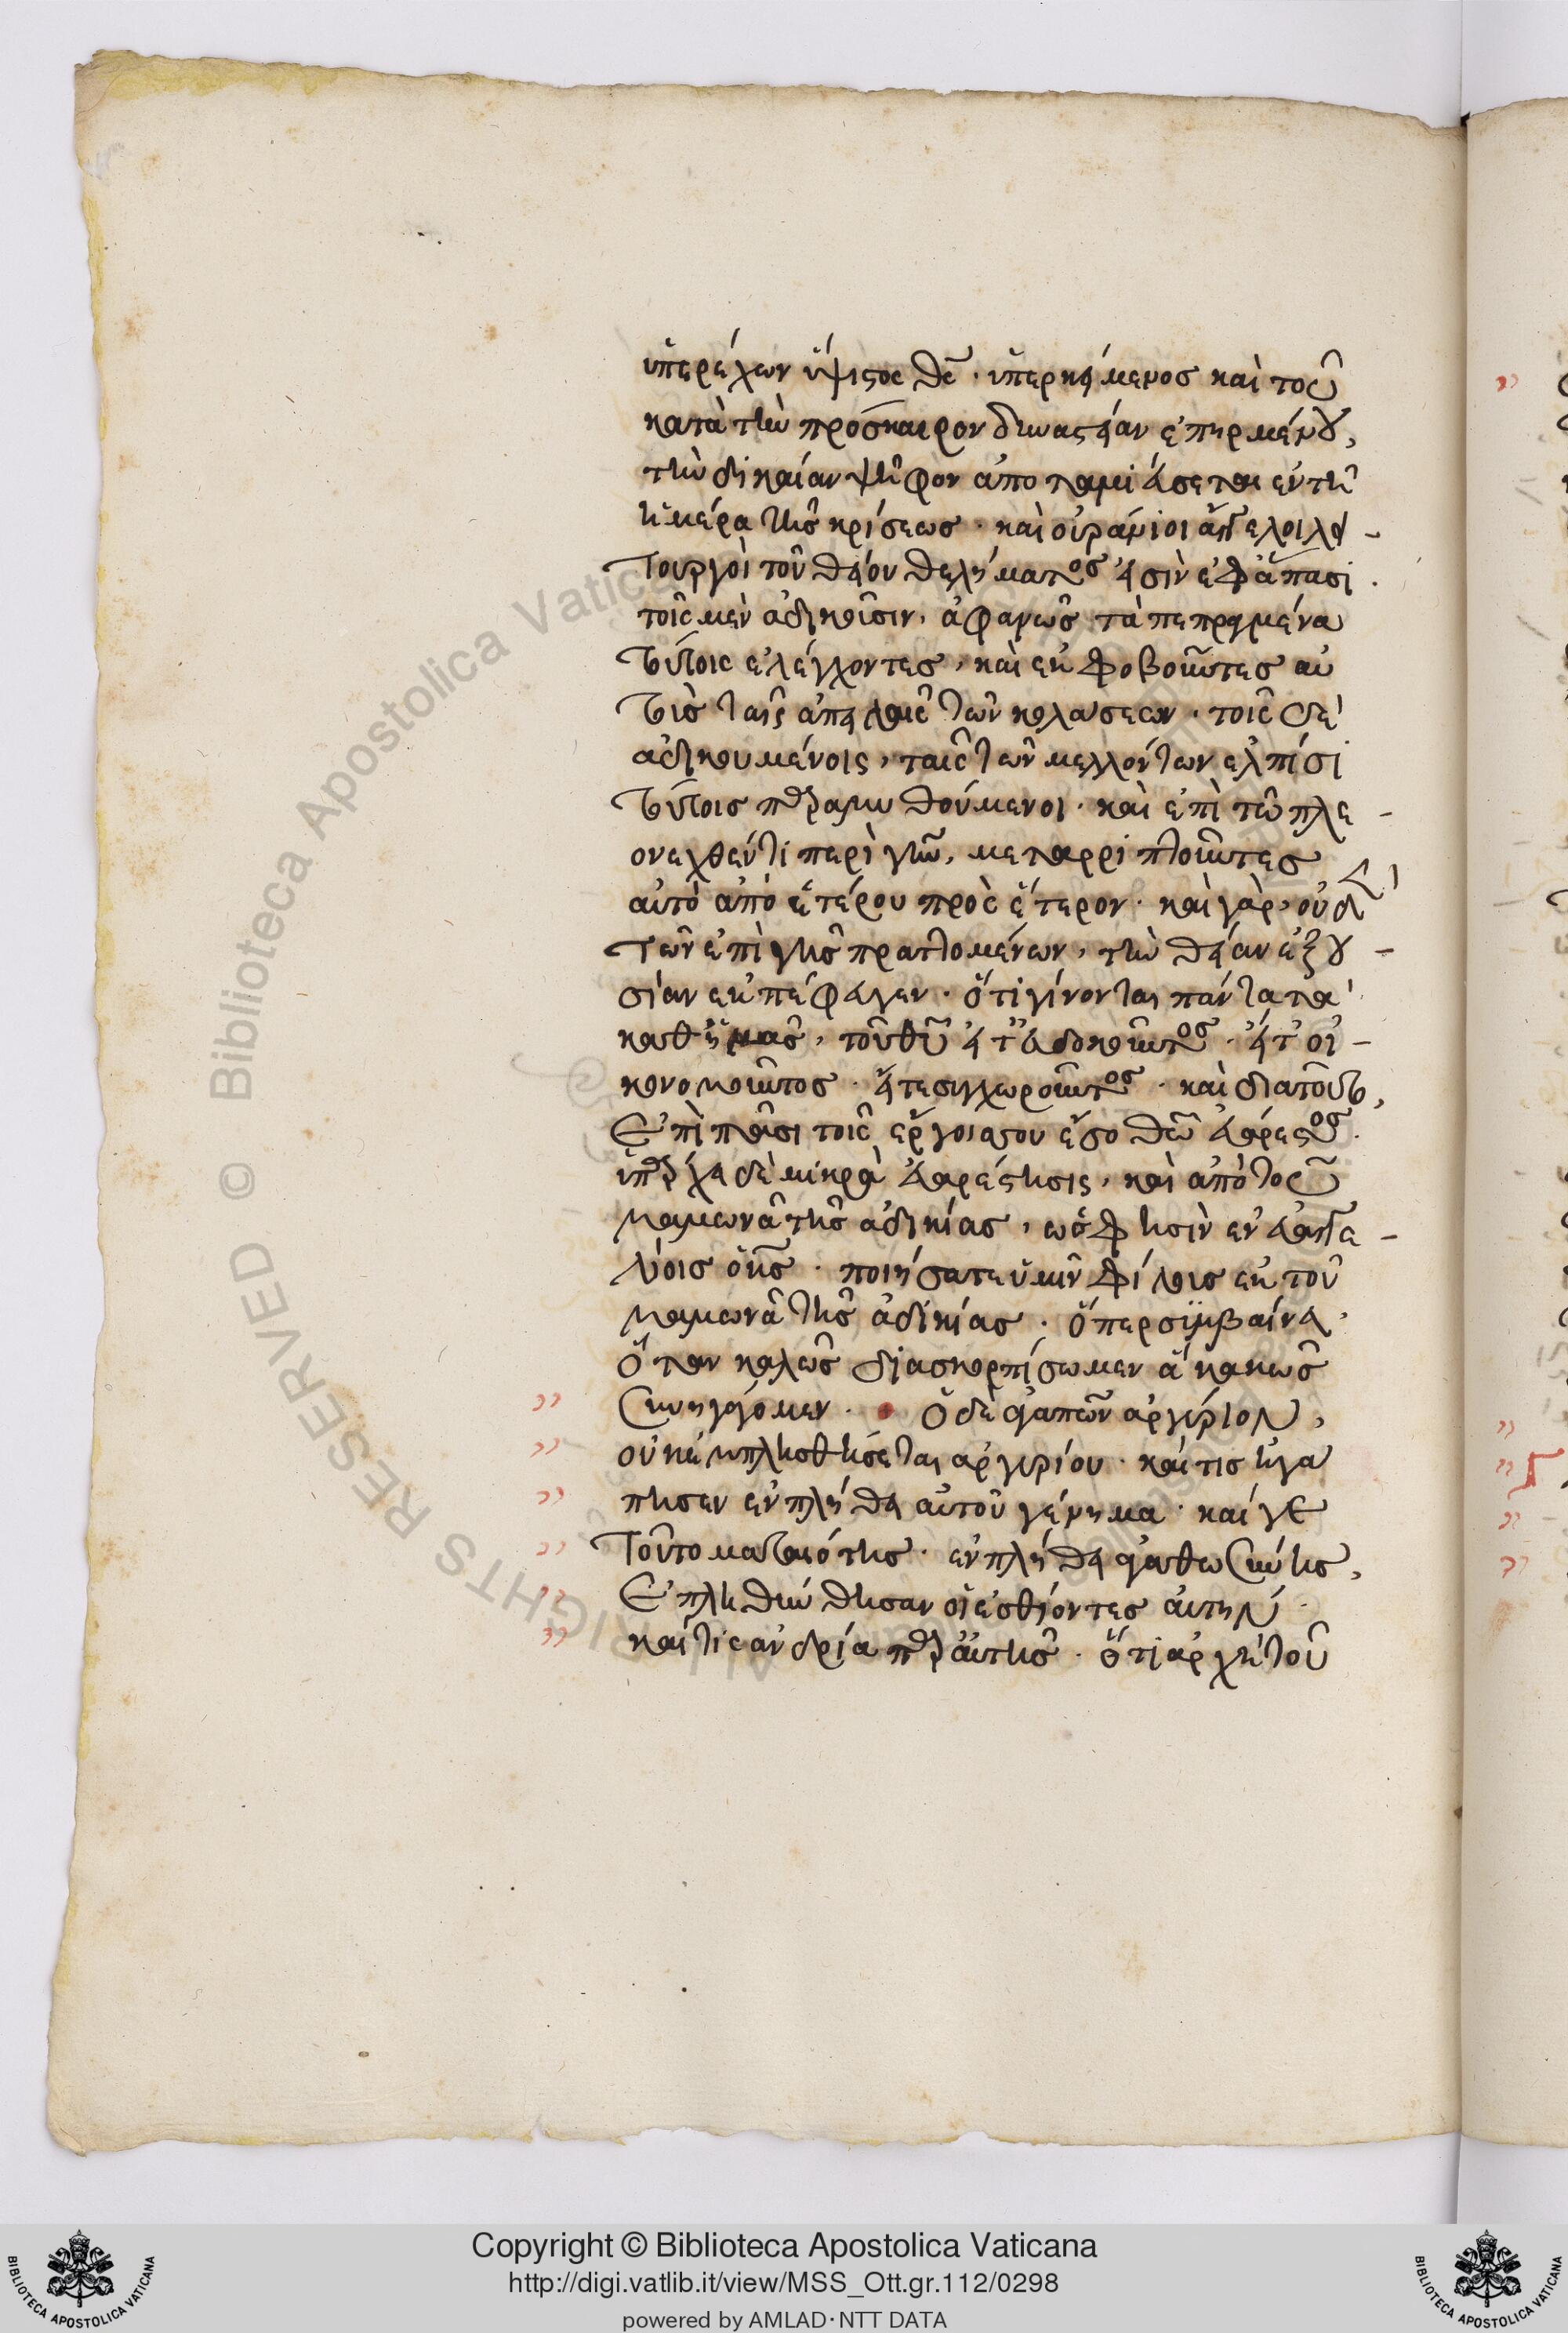 ὑπερέχων ὕψιστος θς̄ · ὑπερκείμενος καὶ τοῦ
κατὰ τὴν πρόσκαιρον δυναστείαν ἐπηρμένου,
τὴν δικαίαν ψῆφον ἀποταμιεύσεται ἐν τῆ
ἡμέρα τῆς κρίσεως · καὶ οὐράνιοι ἄγγελοι λει-
τουργοὶ τοῦ θείου θελήματος εἰσὶν ἐφ ἅπασι ·
τοῖς μὲν ἀδικοῦσιν, ἀφανῶς τὰ πεπραγμένα
τούτοις ἐλέγχοντες, καὶ ἐκφοβοῦντες αὐ
τοὺς ταῖς ἀπειλαῖς τῶν κολάσεων · τοῖς δὲ
ἀδικουμένοις, ταῖς τῶν μελλόντων ἐλπίσι
τούτοις παραμυθούμενοι · καὶ ἐπὶ τῶ πλε-
ονεχθέντι περὶ γῆν, μεταρριπτοῦντες
αὐτὸ ἀπὸ ἑτέρου πρὸς ἕτερον · καὶ γὰρ, οὐδὲν
τῶν ἐπὶ γῆς πραττομένων, τὴν θείαν ἐξου-
σίαν ἐκπέφευγεν · ὅτι γίνονται πάντα τὰ
καθ ἡμᾶς, τοῦ θῡ εἴτ εὐδοκοῦντος · εἴτ οἰ-
κονομοῦντος · εἴτε συγχωροῦντος · καὶ διατοῦτο,
ἐπὶ πᾶσι τοῖς ἔργοις σου ἔσο θεῶ εὐάρεστος ·
ὑπάρχει δὲ μικρὰ εὐαρέστησις, καὶ ἀπὸ τοῦ
μαμωνᾶ τῆς ἀδικίας, ὥς φησιν ἐν εὐαγγε-
λίοις ὁ κς̄ · ποιήσατε ὑμῖν φίλους ἐκ τοῦ
μαμωνᾶ τῆς ἀδικίας · ὅπερ συμβαίνει,
ὅταν καλῶς διασκορπίσωμεν ἃ κακῶς
συνηγάγομεν · Ὁ δὲ ἀγαπῶν ἀργύριον,
οὐκ ἐμπλησθήσεται ἀργυρίου · καί τις ἠγά
πησεν ἐν πλήθει αὐτοῦ γένημα · καί γε
τοῦτο ματαιότης · ἐν πλήθει ἀγαθωσύνης,
ἐπληθύνθησαν οἱ ἐσθίοντες αὐτήν ·
καὶ τίς ἀνδρία παρ αὐτῆς · ὅτι ἀρχὴ τοῦ
Copyright © Biblioteca Apostolica Vaticana
http://digi.vatlib.it/view/MSS_Ott.gr.112/0298
powered by AMLAD·NTT DATA